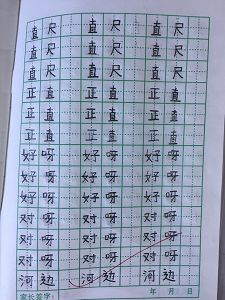 直尺 直尺 直尺
直尺 直尺 直尺
直尺 直尺 直尺
正直 正直 正直
正直 正直 正直
正直 正直 正直
好呀 好呀 好呀
好呀 好呀 好呀
好呀 好呀 好呀
对呀 对呀 对呀
对呀 对呀 对呀
对呀 对呀 对呀
河边 河边 河边
家长签字: 年 月 日